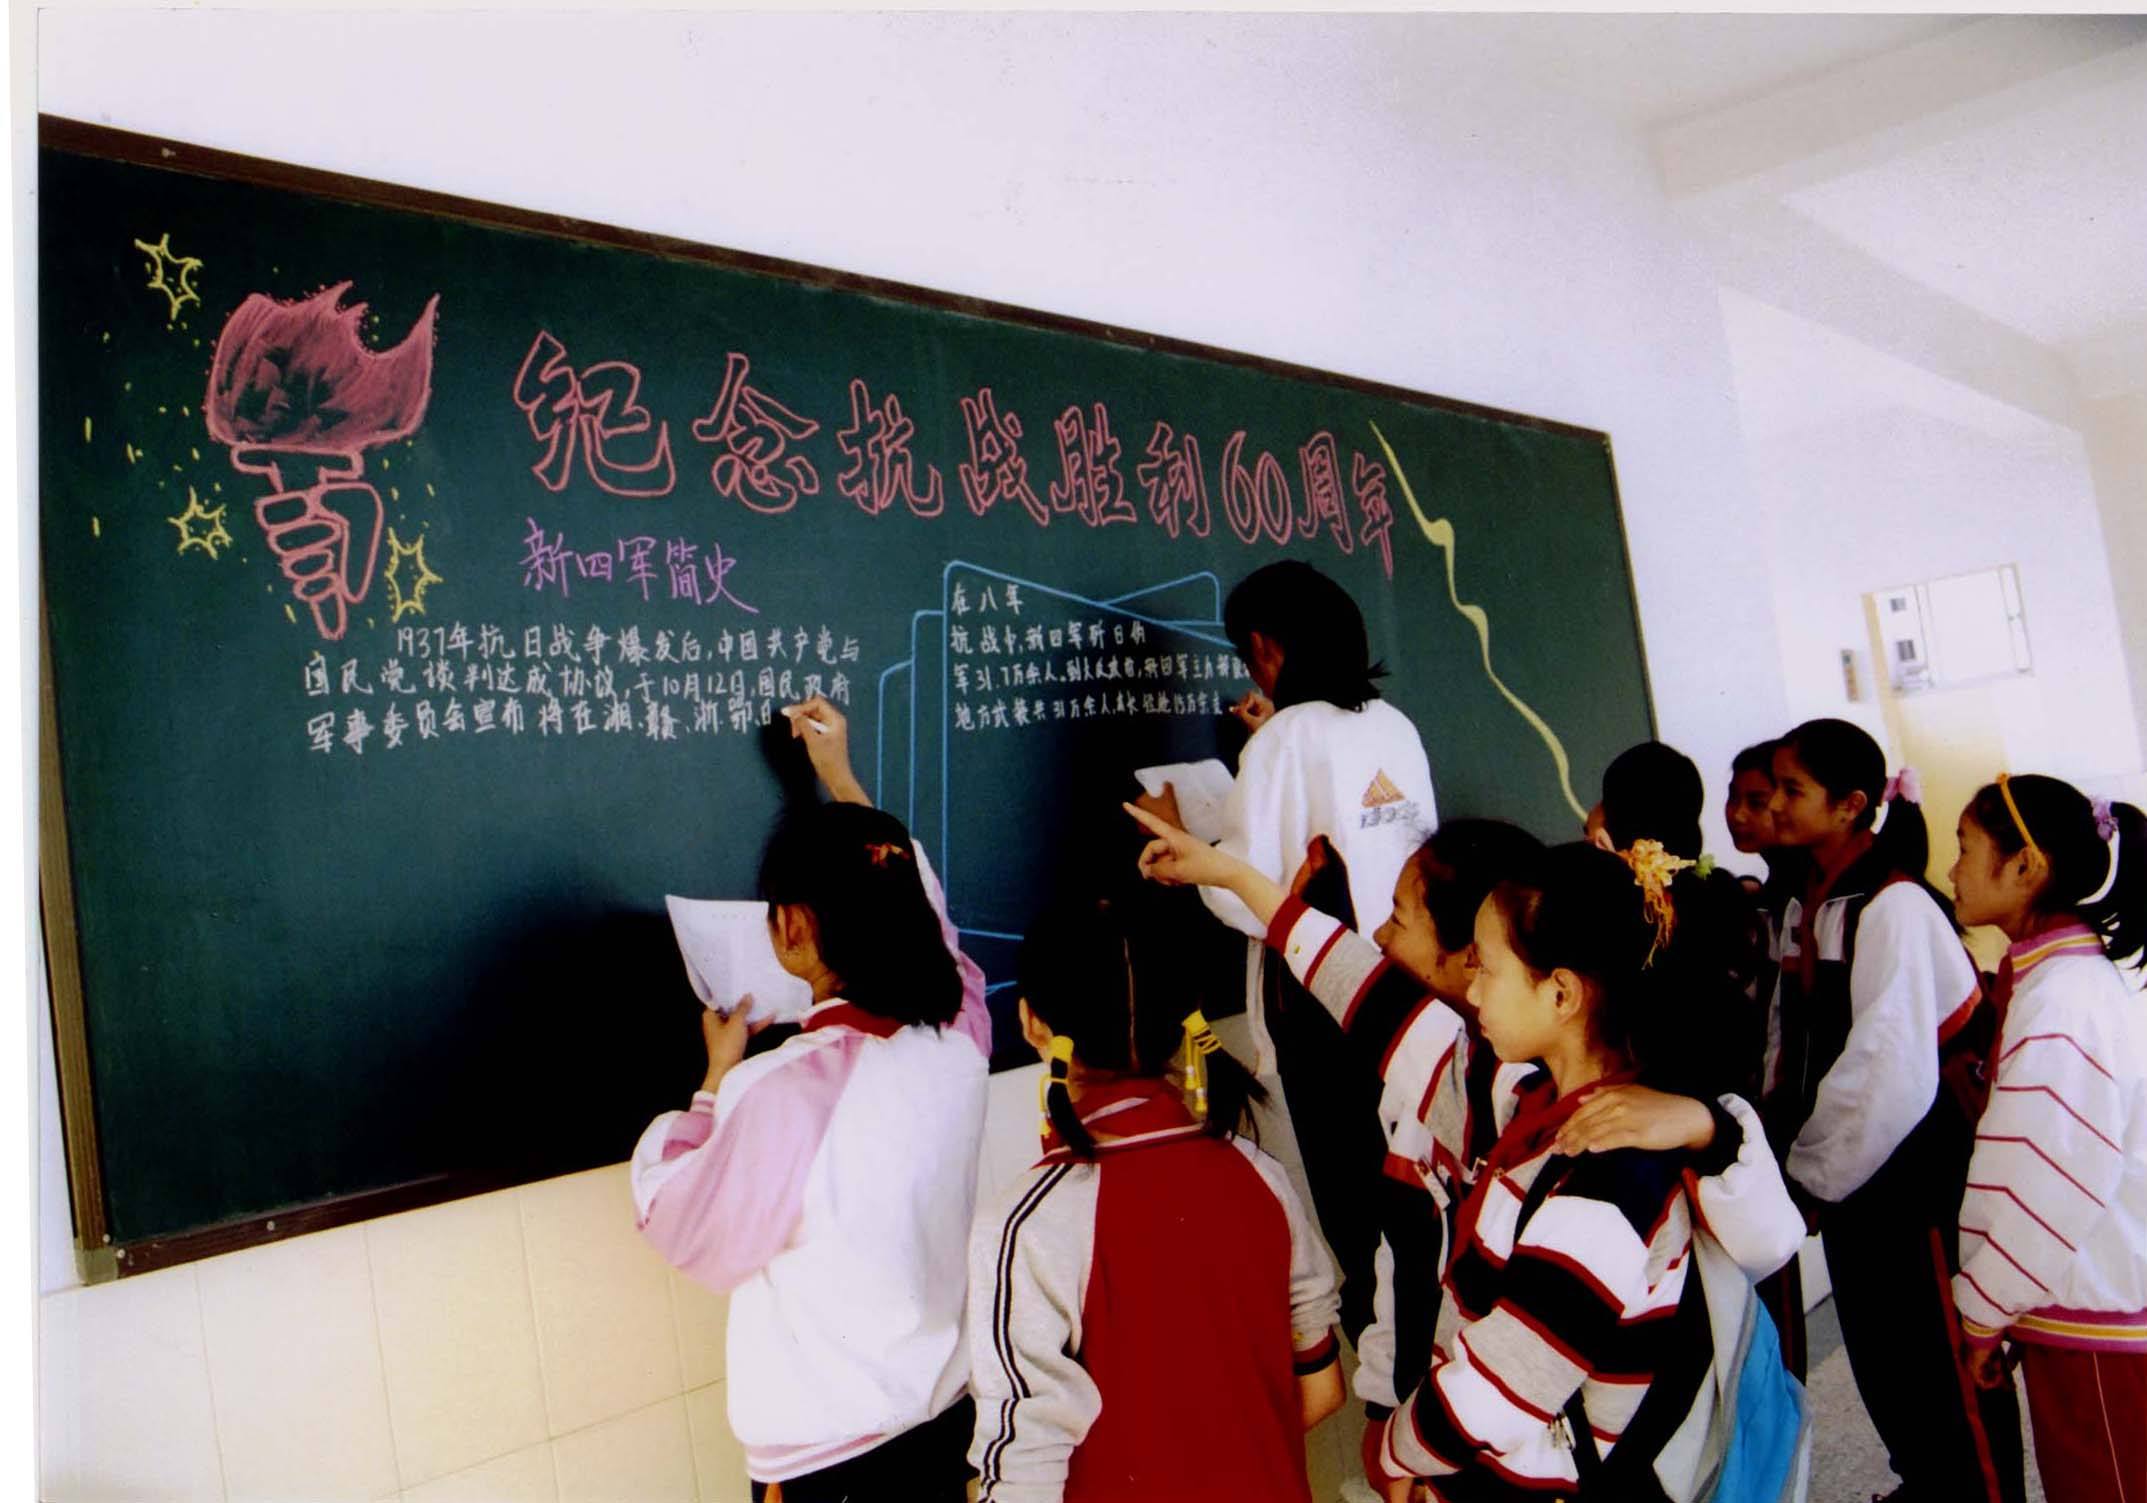 纪念抗战胜利60周年
新四军简史
1937年抗日战争爆发后,中国共产党与
国民党谈判达成协议,于10月12日,国民政府
军事委员会宣布将在湘、赣、浙、鄂、
在八年
抗战中,新四军歼日伪
军31.7万余人。到大反攻前,新四军主力部
地方武装共31万余人,枪